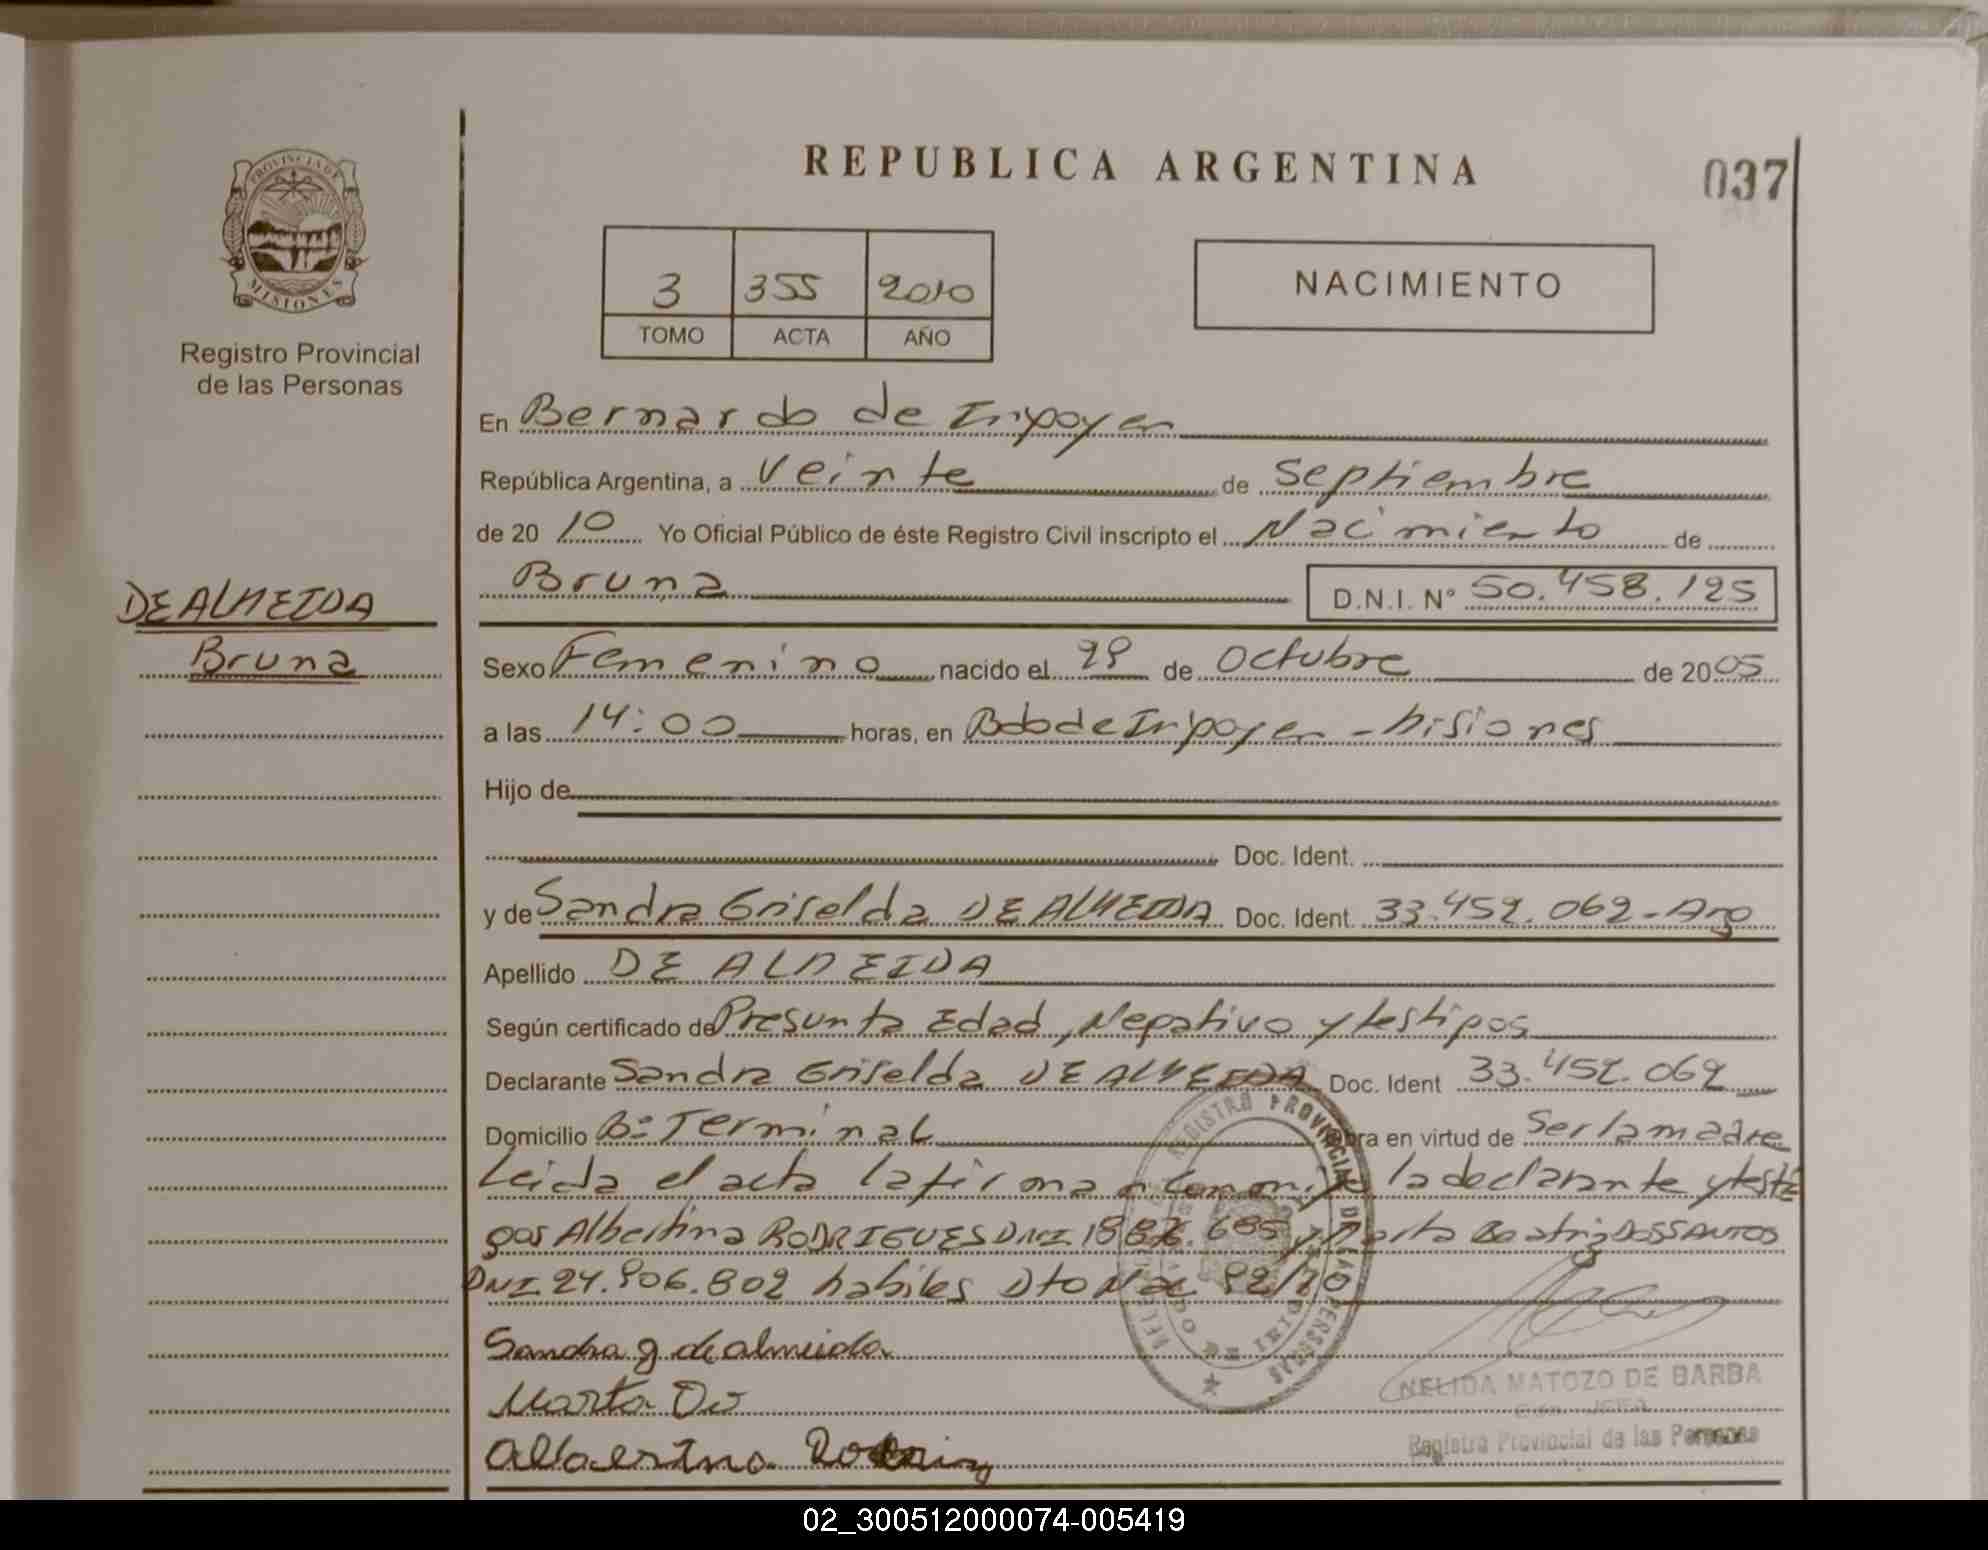 REPUBLICA ARGENTINA
037
PROVINCIA DE
MISIONES
Registro Provincial
de las Personas
3 355 2010
TOMO ACTA AÑO
NACIMIENTO
En Bernardo de Irigoyen
República Argentina, a veinte de septiembre
de 2010 Yo Oficial Público de éste Registro Civil inscripto el Nacimiento de
Bruna D.N.I. N° 50.458.125
DE ALMEIDA
Bruna
Sexo Femenino nacido el 29 de Octubre de 2005
a las 14:00 horas, en Bdo de Irigoyen - Misiones
Hijo de
Doc. Ident.
y de Sandra Griselda DE ALMEIDA Doc. Ident. 33.452.062 - Arg
Apellido DE ALMEIDA
Según certificado de Presunta Edad, Negativo y testigos
Declarante Sandra Griselda DE ALMEIDA Doc. Ident 33.452.062
Domicilio Bº Terminal Obra en virtud de Ser la madre
Leida el acta la firman conmigo la declarante y testi
gos Albertina RODRIGUES DNI 18 685 y Marta Beatriz DOSSANTOS
DNI 24.906.802 habiles Dto
Sandra g de almeida
Marta
NELIDA MATOZO DE BARBA
Registro Provincial de las Personas
REGISTRO PROVINCIAL DE LAS PERSONAS
02_300512000074-005419